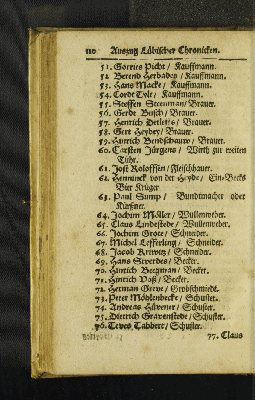 110 Auszug Lübischer Chronicken.
51. Gorries Picht / Kauffmann.
52. Berend Herbades / Kauffmann.
53. Hans Macke / Kauffmann.
54. Cordt Tyle / Kauffmann.
55. Steffen Streetman / Brauer.
56. Gerdt Busch / Brauer.
57. Henrich Detleffs / Brauer.
58. Gert Heybey / Brauer.
59. Hinrich Bendschauw / Brauer.
60. Carsten Jürgens / Wirth zur weiten
Tühr.
61. Jost Roloffsen / Fleischhauer.
62. Henninck von der Heyde / Ein-Becks
Bier Krüger
63. Paul Sump / Bundtmacher oder
Kürßner.
64. Jochum Möller / Wullenweber.
65. Claus Lindestede / Wullenweber.
66. Jochim Grote / Schneider.
67. Michel Lefferling / Schneider.
68. Jacob Krewitz / Schneider.
69. Hans Siverdes / Becker.
70. Hinrich Bretzman / Becker.
71. Hinrich Vaß / Becker.
72. Herman Gerve / Grobschmiedt.
73. Peter Möhlenbecke / Schuster.
74. Andreas Hüvener / Schuster.
75. Dietrich Gravenstede / Schuster.
76. Tewes Tabbert / Schuster.
77. Claus